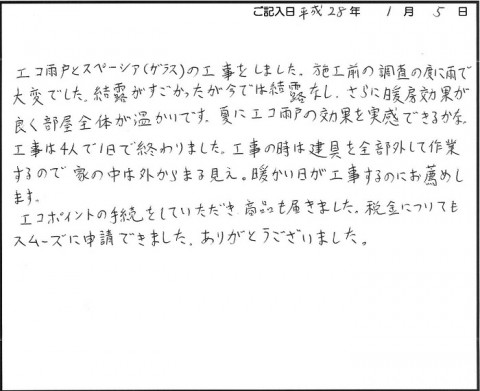 ご記入日 平成 28 年 1 月 5 日
エコ雨戸とスペーシア(ガラス)の工事をしました。施工前の調査の度に雨で
大変でした。結露がすごかったが今では結露なし、さらに暖房効果が
良く部屋全体が温かいです。夏にエコ雨戸の効果を実感できるかな。
工事は4人で1日で終わりました。工事の時は建具を全部外して作業
するので家の中は外からまる見え。暖かい日が工事するのにお薦めし
ます。
エコポイントの手続をしていただき商品も届きました。税金についても
スムーズに申請できました。ありがとうございました。